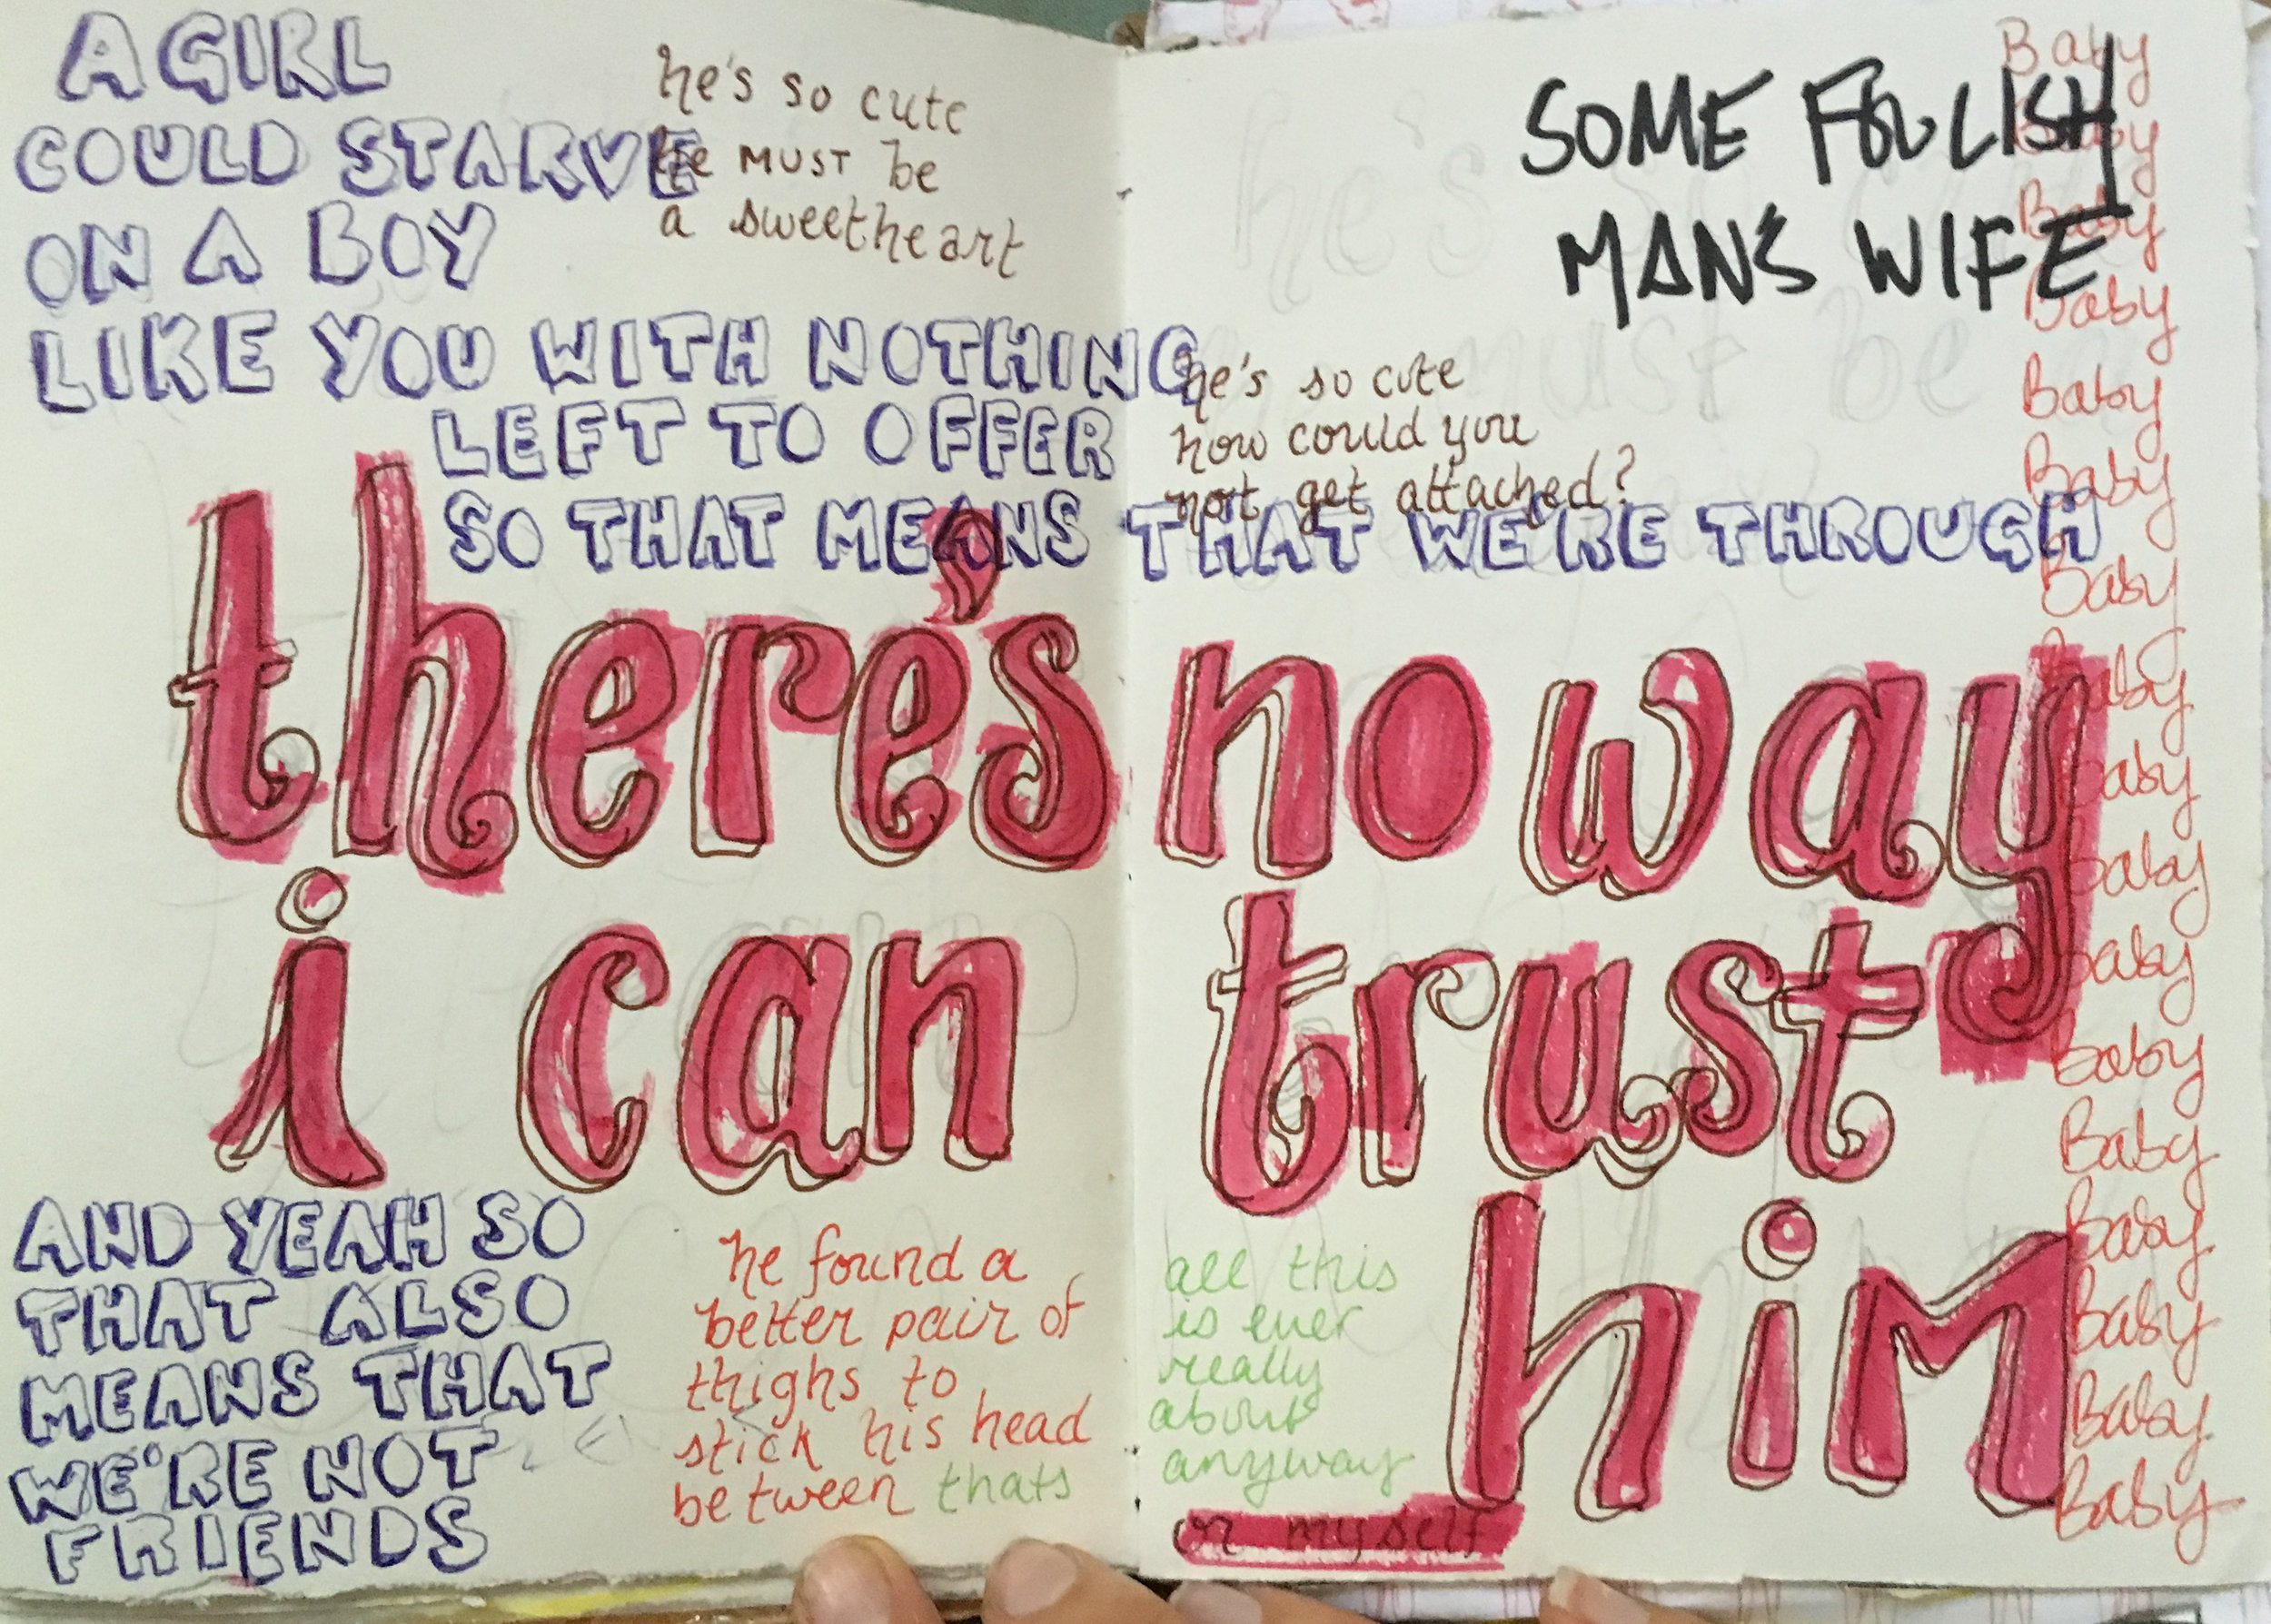 A GIRL
COULD STARVE
ON A BOY
LIKE YOU WITH NOTHING
LEFT TO OFFER
SO THAT MEANS THAT WE'RE THROUGH
he's so cute
he MUST be
a sweetheart
SOME FOOLISH
MAN'S WIFE
he's so cute
how could you
not get attached?
there's no way
i can trust
him
AND YEAH SO
THAT ALSO
MEANS THAT
WE'RE NOT
FRIENDS
he found a
better pair of
thighs to
stick his head
between thats
all this
is ever
really
about
anyway
or myself
Baby
Baby
Baby
Baby
Baby
Baby
Baby
Baby
Baby
Baby
Baby
Baby
Baby
Baby
Baby
Baby
Baby